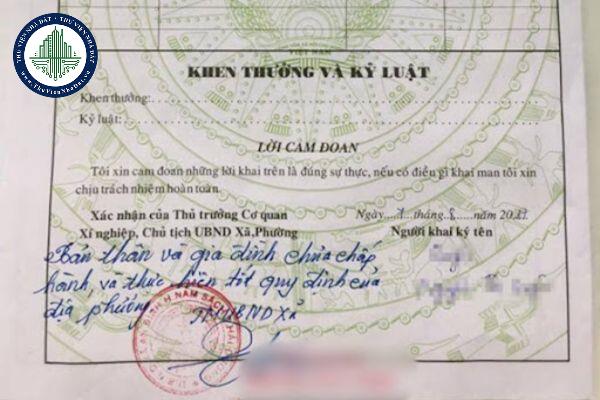 THƯ VIỆN NHÀ ĐẤT
www.ThuVienNhaDat.vn
VIỆT NAM
KHEN THƯỞNG VÀ KỶ LUẬT
Khen thưởng:
Kỷ luật:
LỜI CAM ĐOAN
Tôi xin cam đoan những lời khai trên là đúng sự thực, nếu có điều gì khai man tôi xin
chịu trách nhiệm hoàn toàn.
Xác nhận của Thủ trưởng Cơ quan
Ngày....1....tháng..8.....năm 2021
Xí nghiệp, Chủ tịch UBND Xã,Phường
Người khai ký tên
Bản thân và gia đình chưa chấp
hành, và thực hiện tốt quy định của
địa phương
TM UBND Xã
H.NAM SÁCH